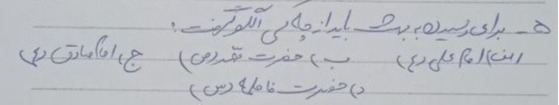 ۵- برای رسیدن به بهشت باید از چه کسی الگو گرفت؟
الف) امام علی (ع) ب) حضرت محمد (ص) ج) امام صادق (ع)
د) حضرت فاطمه (س)